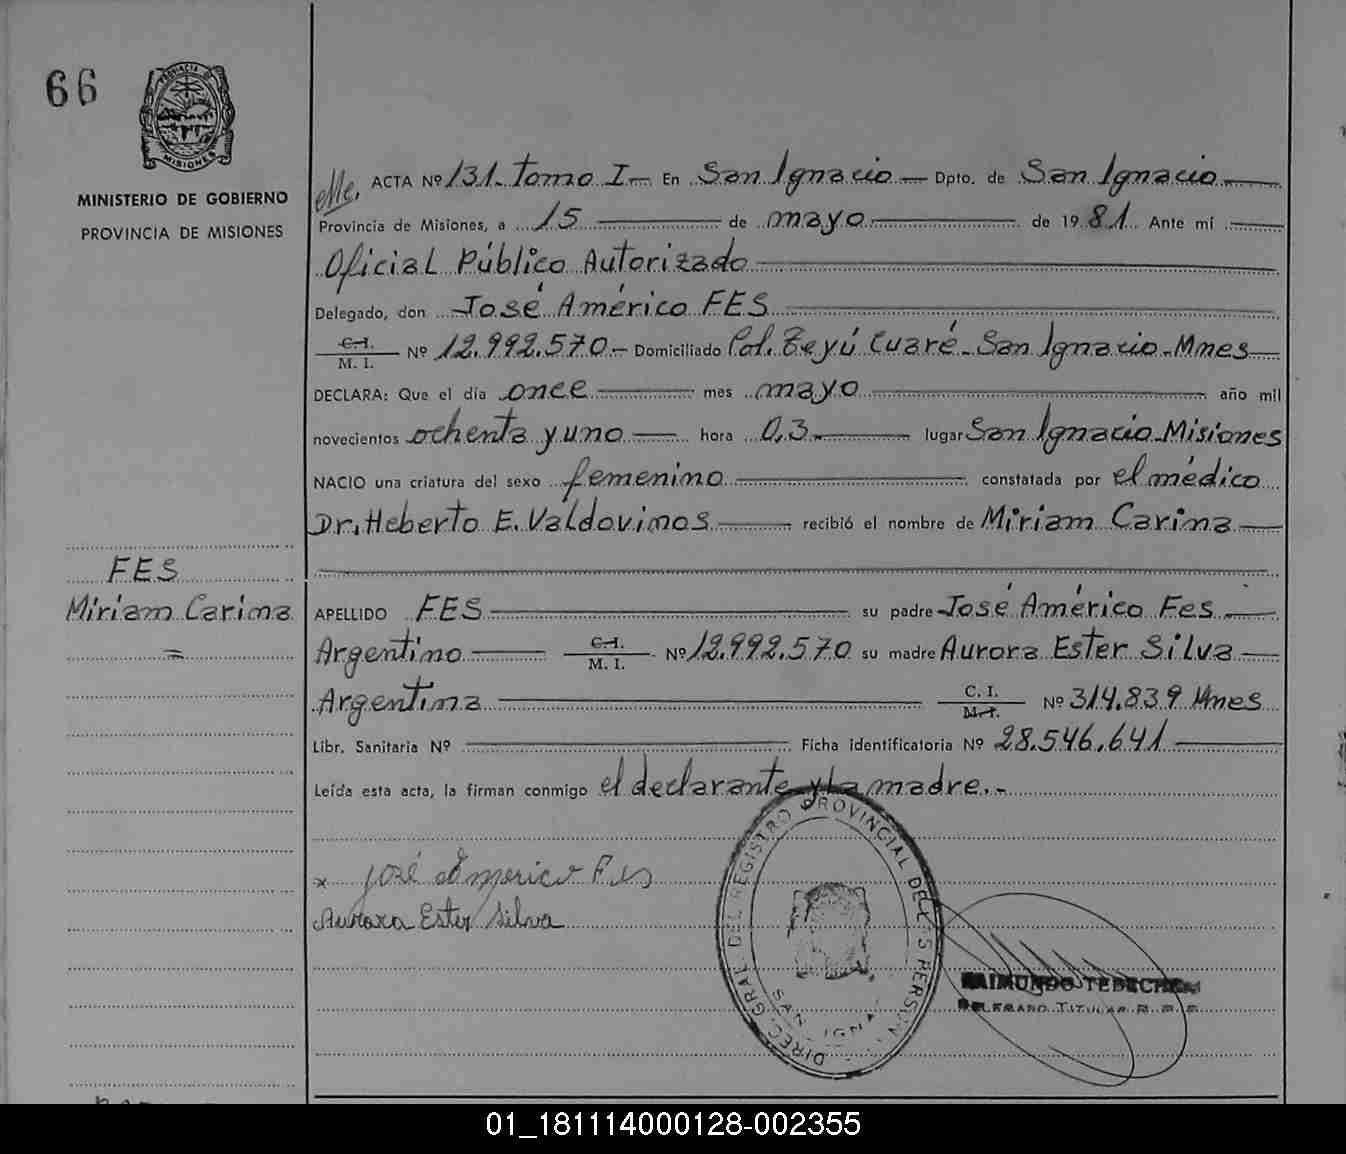 66
PROVINCIA DE
MISIONES
MINISTERIO DE GOBIERNO
PROVINCIA DE MISIONES
FES
Miriam Carina
=
ACTA Nº 131. Tomo I- En San Ignacio - Dpto. de San Ignacio
Provincia de Misiones, a 15 de mayo de 1981. Ante mí
Oficial Público Autorizado
Delegado, don José Américo FES
C.I. / M. I. Nº 12.992.570.- Domiciliado Pol. Teyú Cuaré - San Ignacio - Mnes
DECLARA: Que el día once mes mayo año mil
novecientos ochenta y uno hora 0,3. lugar San Ignacio - Misiones
NACIO una criatura del sexo femenino constatada por el médico
Dr. Heberto E. Valdovinos recibió el nombre de Miriam Carina
APELLIDO FES su padre José Américo Fes
Argentino C.I. / M. I. Nº 12.992.570 su madre Aurora Ester Silva
Argentina C. I. / M.I. Nº 314.839 Mnes
Libr. Sanitaria Nº Ficha identificatoria Nº 28.546.641
Leída esta acta, la firman conmigo el declarante y la madre.-
x José Americo Fes
Aurora Ester Silva
DIREC. GRAL. DEL REGISTRO PROVINCIAL DE LAS PERSONAS
SAN IGNACIO
RAIMUNDO
DELEGADO TITULAR R. P. P.
01_181114000128-002355